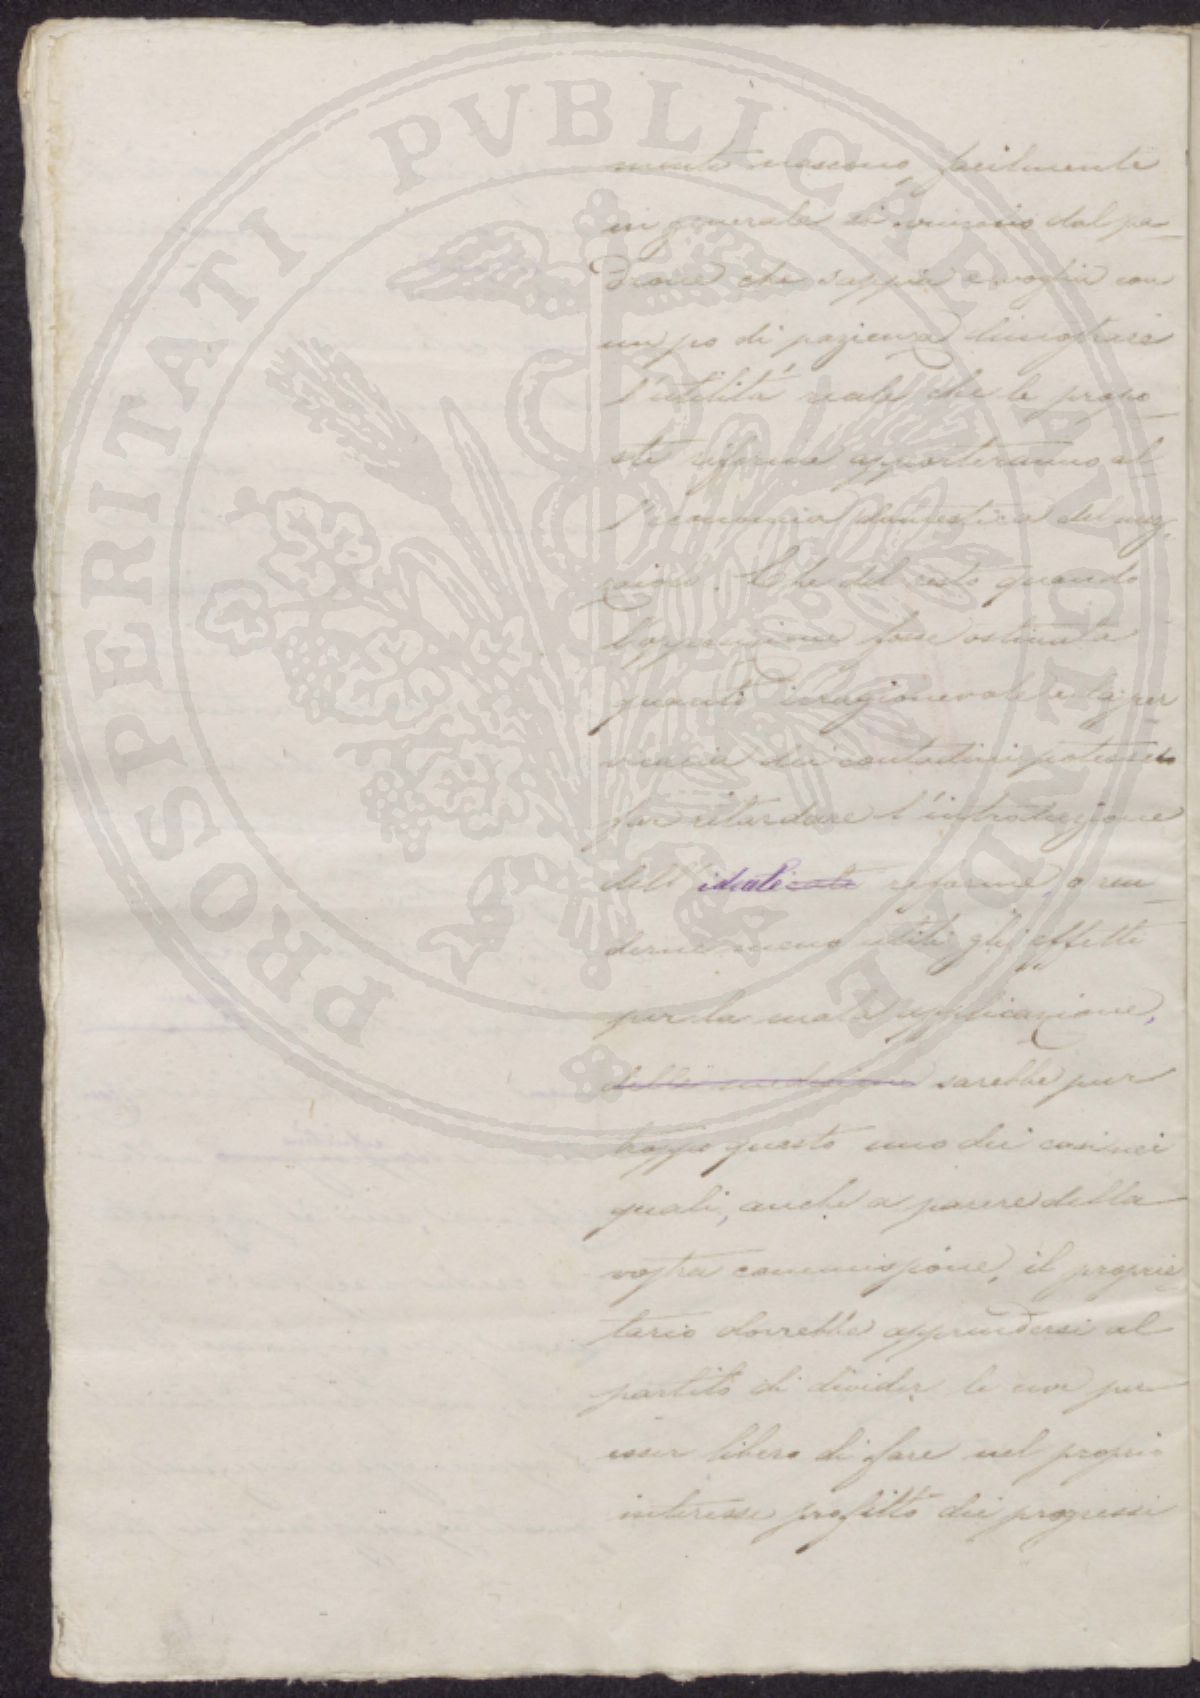 PROSPERITATI PVBLICAE AVGENDAE
mento nascono, facilmente
in generale si vincono dal pa-
drone che sappia e voglia con
un po di pazienza dimostrare
l'utilità reale che le propo-
ste riforme apporteranno al-
l'economia domestica dei mez-
zaioli. Che del resto quando
l'opposizione fosse ostinata
quanto irragionevole e la per
vicacia dei contadini potesse
far ritardare l'introduzione
dell' ideate riforme, o ren-
derne meno utili gli effetti
per la mala applicazione,
delle medesime sarebbe pur
troppo questo uno dei casi nei
quali, anche a parere della
vostra commissione, il proprie
tario dovrebbe apprendersi al
partito di divider le per
esser libero di fare nel proprio
interesse profitto dei progressi